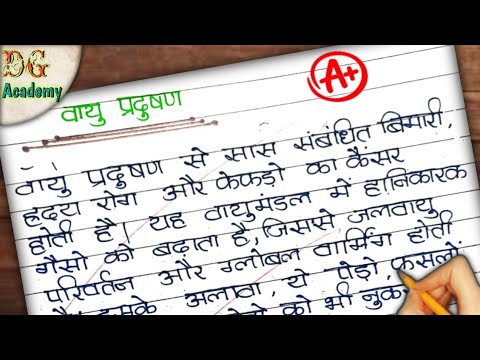 DG
Academy
A+
वायु प्रदुषण
वायु प्रदुषण से सास संबंधित बिमारी,
ह्रदय रोग और फेफड़ो का कैंसर
होती है। यह वायुमंडल में हानिकारक
गैसो को बढ़ाता है, जिससे जलवायु
परिवर्तन और ग्लोबल वार्मिंग होती
है। इसके अलावा, ये पेड़ो, फसलों
को भी